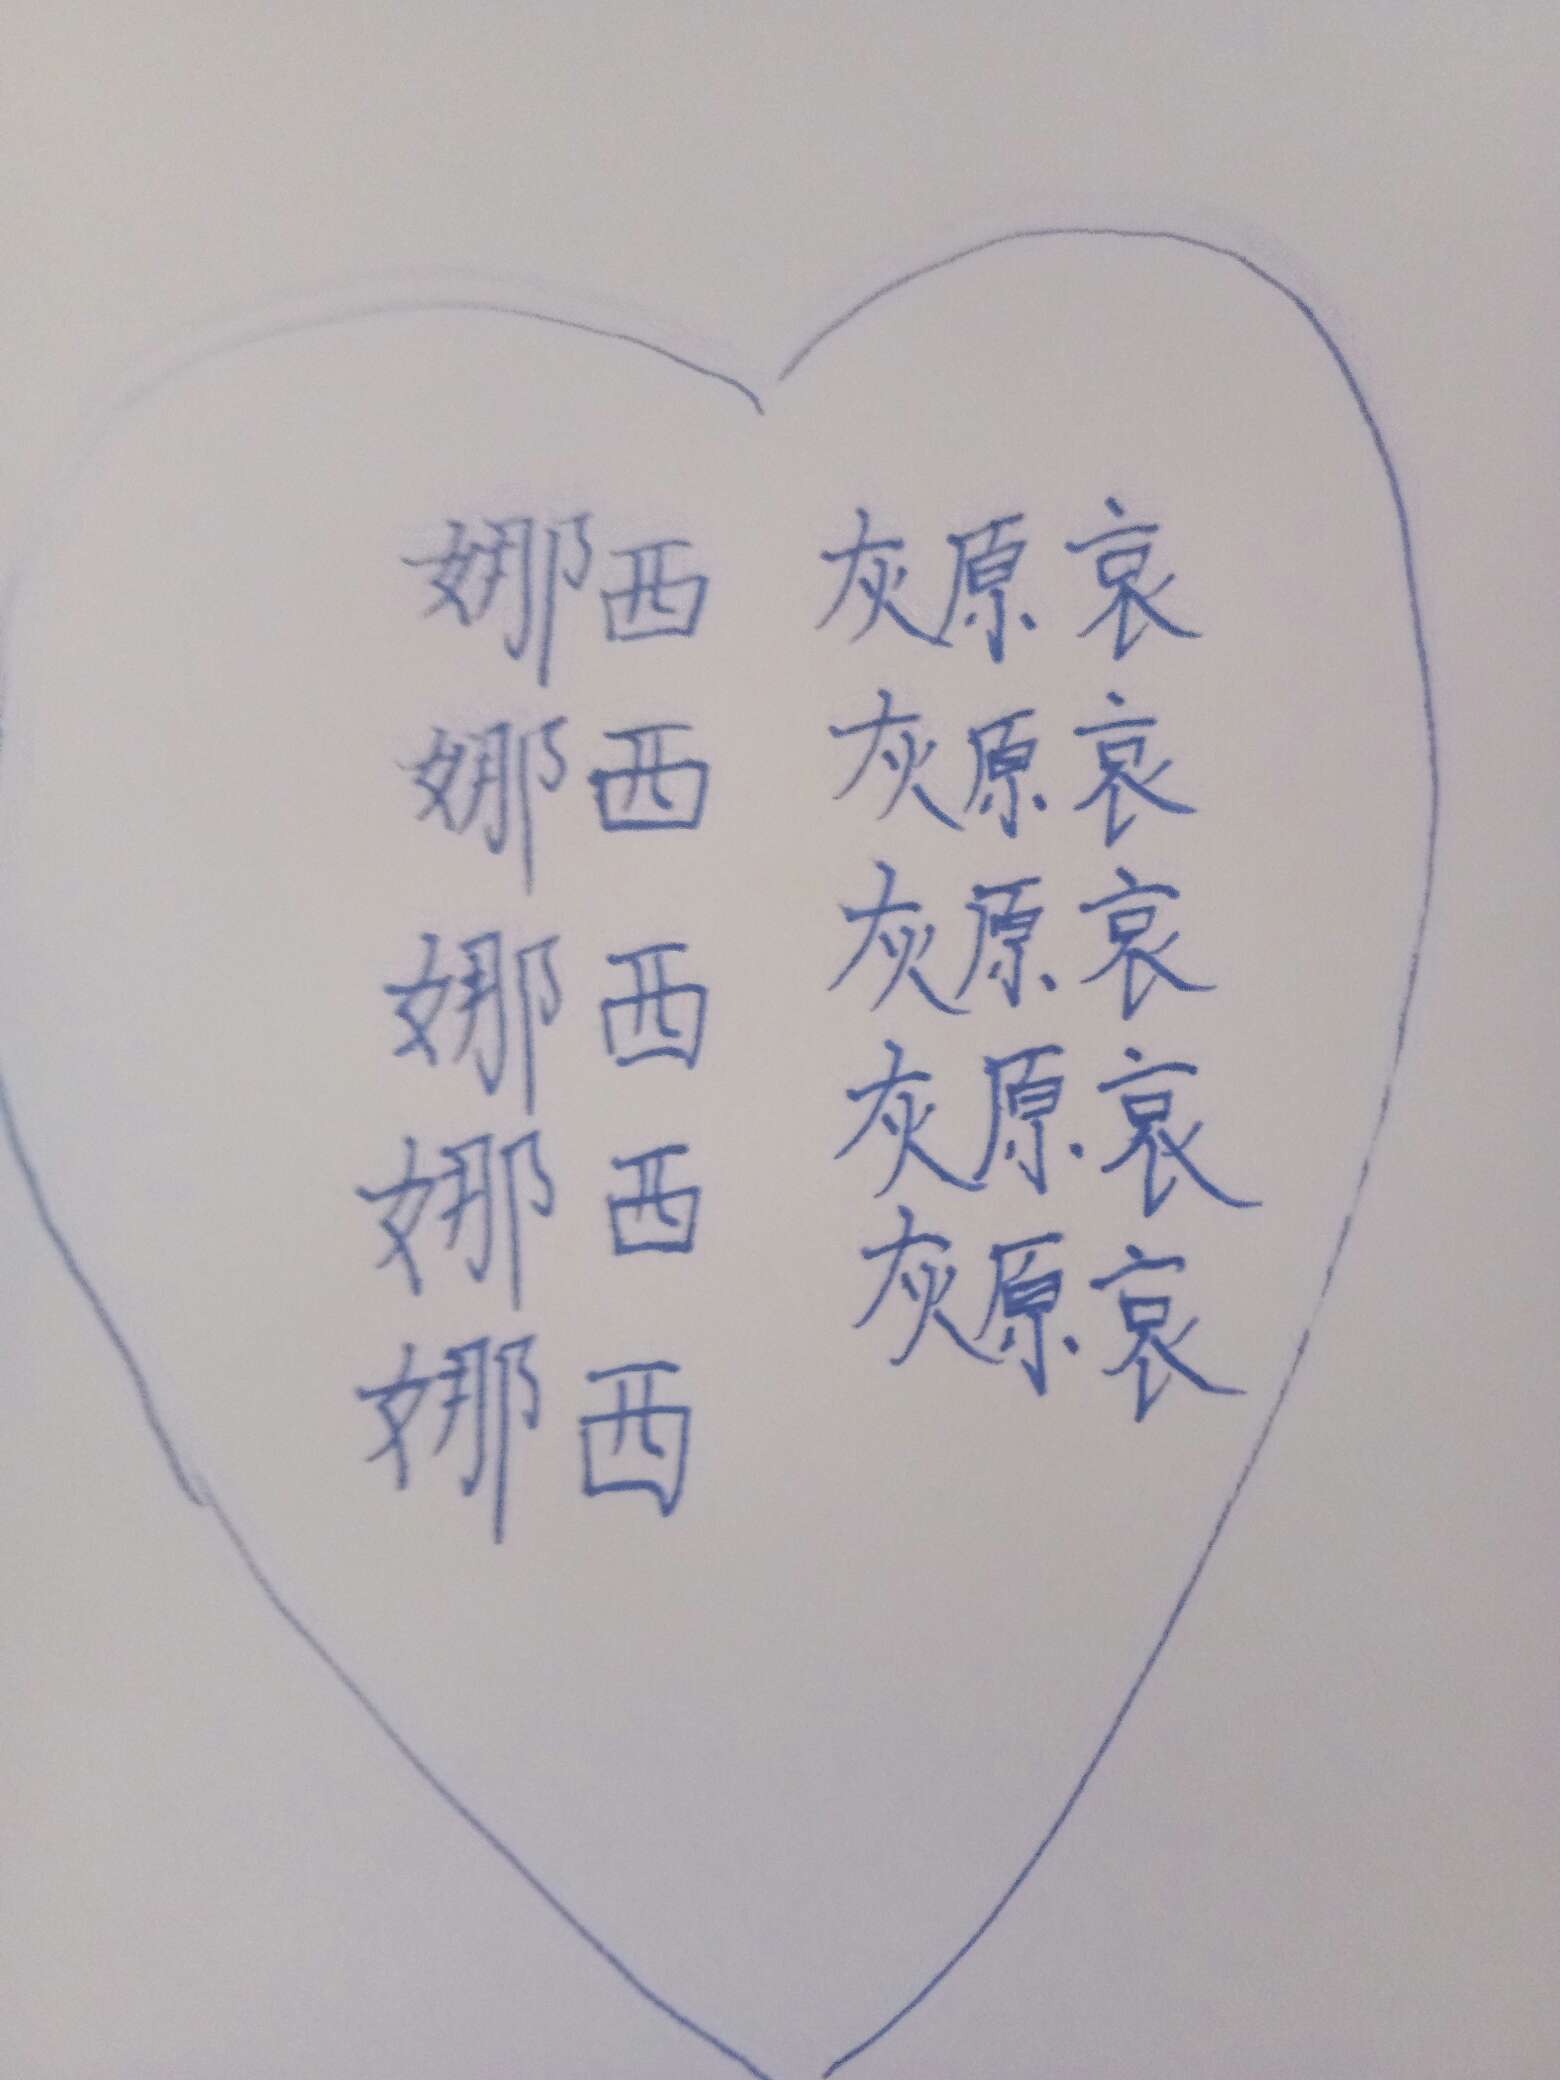 娜西 灰原哀
娜西 灰原哀
娜西 灰原哀
娜西 灰原哀
娜西 灰原哀